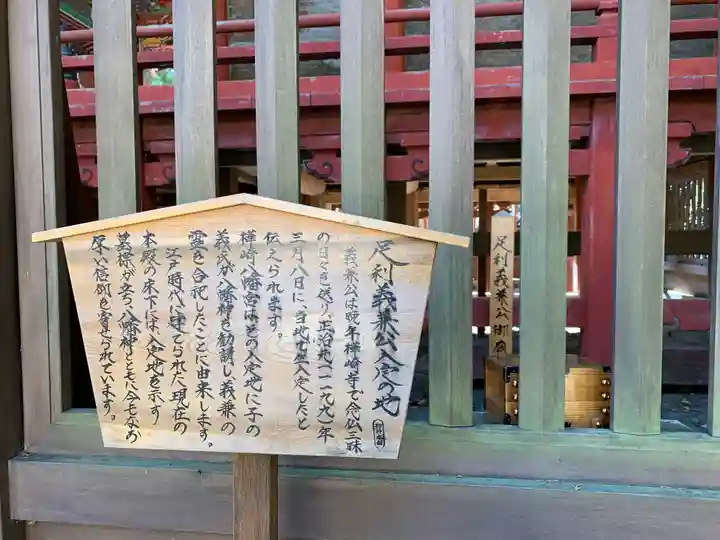 足利義兼公入定の地
義兼公は晩年樺崎寺で念仏三昧
の日々を送り、正治元(一一九九)年
三月八日に、当地で生入定したと
伝えられます。
樺崎八幡宮はその入定地に子の
義氏が八幡神を勧請し義兼の
霊を合祀したことに由来します。
江戸時代に建てられた現在の
本殿の床下には、入定地を示す
墓標が立ち、八幡神とともに今もなお
厚い信仰を寄せられています。
足利義兼公御